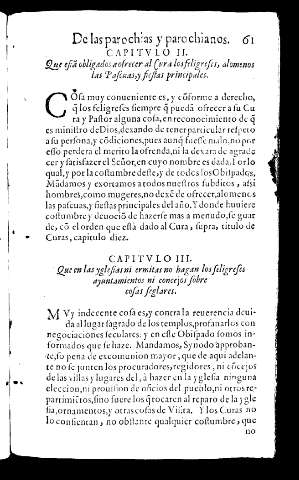 De las parochias y parochianos. 61
CAPITVLO II.
Que está obligados a ofrecer al Cura los feligreses, alomenos
las Pascuas, y fiestas principales.
COsa muy conueniente es, y cõforme a derecho,
q̃ los feligreses siempre q̃ puedã ofrecer a su Cu
ra y Pastor alguna cosa, en reconocimiento de q̃
es ministro de Dios, dexando de tener particular respeto
a su persona, y cõdiciones, pues aunq̃ fuesse malo, no por
esso perdera el merito la ofrenda, ni la dexara de agrade
cer y satisfazer el Señor, en cuyo nombre es dada. Por lo
qual, y por la costumbre deste, y de todos los Obispados,
Mãdamos y exortamos a todos nuestros subditos, assi
hombres, como mugeres, no dexẽ de ofrecer, alomenos
las pascuas, y fiestas principales del año. Y donde huuiere
costumbre y deuociõ de hazerse mas a menudo, se guar
de, cõ el orden que está dado al Cura, supra, titulo de
Curas, capitulo diez.
CAPITVLO III.
Que en las yglesias ni ermitas no hagan los feligreses
ayuntamientos ni concejos sobre
cosas seglares.
MVy indecente cosa es, y contra la reuerencia deui-
da al lugar sagrado de los templos, profanarlos con
negociaciones seculares: y en este Obispado somos in-
formados que se haze. Mandamos, Synodo approban-
te, so pena de excomunion mayor, que de aqui adelan-
te no se junten los procuradores, regidores, ni cõcejos
de las villas y lugares del, à hazer en la yglesia ninguna
eleccion, ni prouision de oficios del pueblo, ni otros re-
partimiẽtos, sino fuere los q̃ tocaren al reparo de la ygle
sia, ornamentos, y otras cosas de Visita. Y los Curas no
lo consientan, no obstante qualquier costumbre, que
no